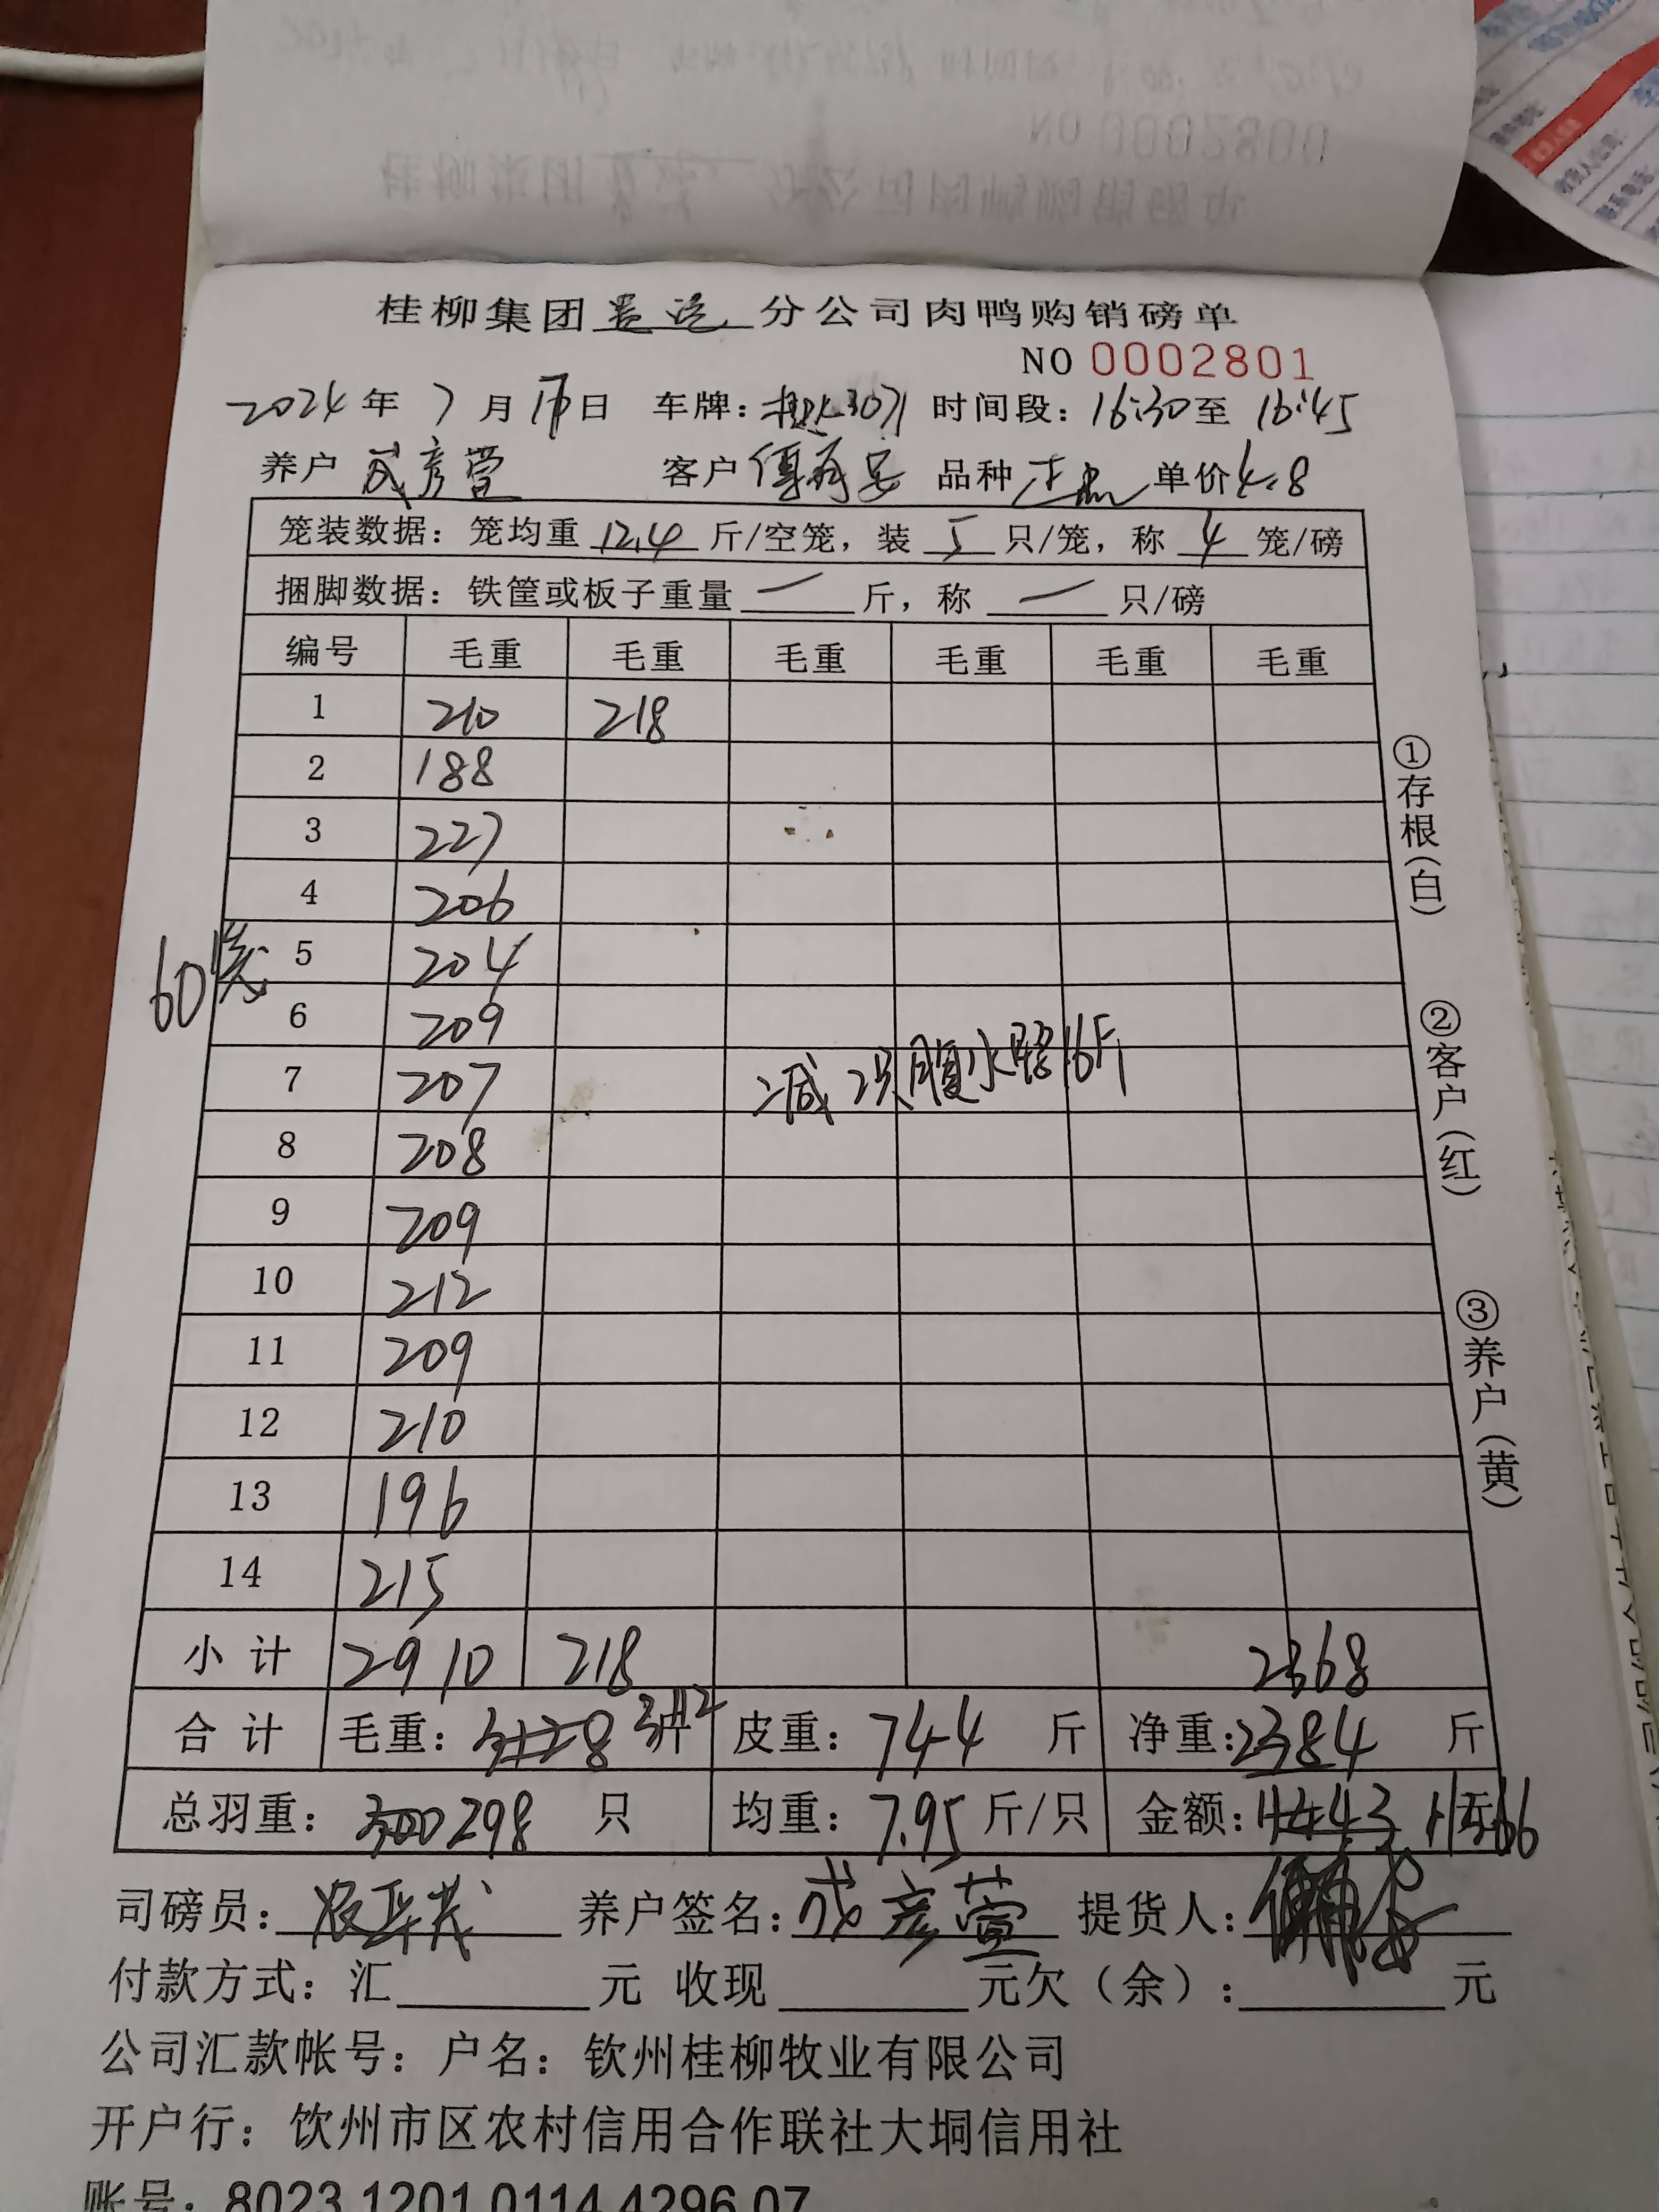 NO 0002800
桂柳集团 分公司肉鸭购销磅单
NO 0002801
2024年 7月 日 车牌: 时间段:16:30至 16:45
养户 成彦萱 客户 傅 品种 单价4.8
笼装数据: 笼均重 12.4 斤/空笼, 装 5 只/笼, 称 4 笼/磅
捆脚数据: 铁筐或板子重量 — 斤, 称 — 只/磅
编号 毛重 毛重 毛重 毛重 毛重 毛重
1 210 218
2 188
3 227
4 206
5 204
60笼
6 209
7 207 减2只腹水鸭16斤
8 208
9 209
10 212
11 209
12 210
13 196
14 215
小计 2910 218 2368
合计 毛重: 3128 3112 斤 皮重: 744 斤 净重:2384 斤
总羽重: 300 298 只 均重: 7.95 斤/只 金额:11443 11366
司磅员: 养户签名:成彦萱 提货人:
付款方式: 汇 元 收现 元欠(余): 元
公司汇款帐号: 户名: 钦州桂柳牧业有限公司
开户行: 饮州市区农村信用合作联社大垌信用社
账号: 8023 1201 0114 4296 07
①存根(白)
②客户(红)
③养户(黄)